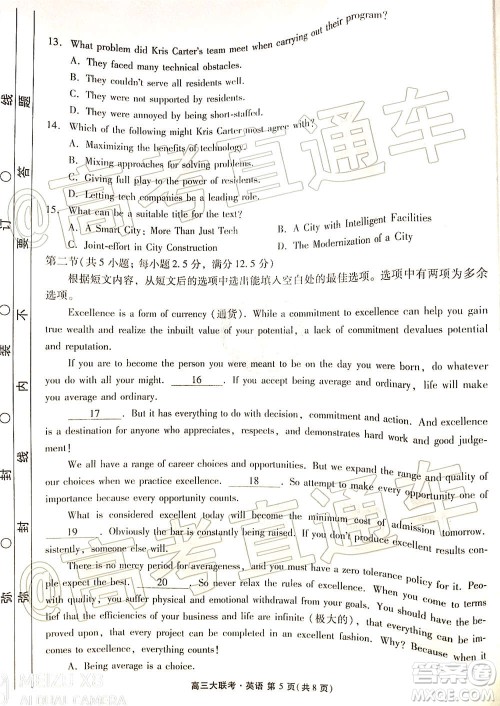 13. What problem did Kris Carter's team meet when carrying out their program?
A. They faced many technical obstacles.
B. They couldn't serve all residents well.
C. They were not supported by residents.
D. They were annoyed by being short-staffed.
14. Which of the following might Kris Carter most agree with?
A. Maximizing the benefits of technology.
B. Mixing approaches for solving problems.
C. Giving full play to the power of residents.
D. Letting tech companies take the lead.
15. What can be a suitable title for the text?
A. A Smart City: More Than Just Tech
B. A City with Intelligent Facilities
C. Joint-effort in City Construction
D. The Modernization of a City
第二节(共5小题;每小题2.5分,满分12.5分)
根据短文内容,从短文后的选项中选出能填入空白处的最佳选项。选项中有两项为多余
选项。
Excellence is a form of currency (通货). While a commitment to excellence can help you gain
true wealth and realize the inbuilt value of your potential, a lack of commitment devalues potential
and reputation.
If you want to become the person you were meant to be on the day you were born, do what
you do with all your might. 16 If you accept being average and ordinary, life will make
you average and ordinary.
17 But it has everything to do with decision, commitment and action. And excellence
is a destination for anyone who appreciates, respects, and demonstrates hard work and good judge-
ment!
We all have a range of career choices and opportunities. We expand the range and quality of
our choices whenever we choose excellence. 18 So attempt to make every opportunity an
excellent one because every opportunity counts.
What is considered excellent today will become the minimum cost of admission tomorrow.
19 Obviously the bar is constantly being raised. If you don't produce excellent results con-
sistently, someone else will become excellent instead.
There is no mercy period in excellence, and you must have a zero tolerance policy for it. Peo-
ple expect the best. 20 So never relax the rules of excellence. You should be obsessed
with quality because you suffer physical and emotional withdrawal from your goals. You must be-
lief that the efficiencies of your business and life are infinite (极大的), and you should insist
that your every project be completed in an excellent fashion. Why? Because everything you do or
don't do counts!
A. Being average is a choice.
高三大联考·英语 第5页(共8页)
弥 封 装 订 线
不 内 线 封
要 答 题
@高考直通车
@高考直通车
AI QUAD CAMERA